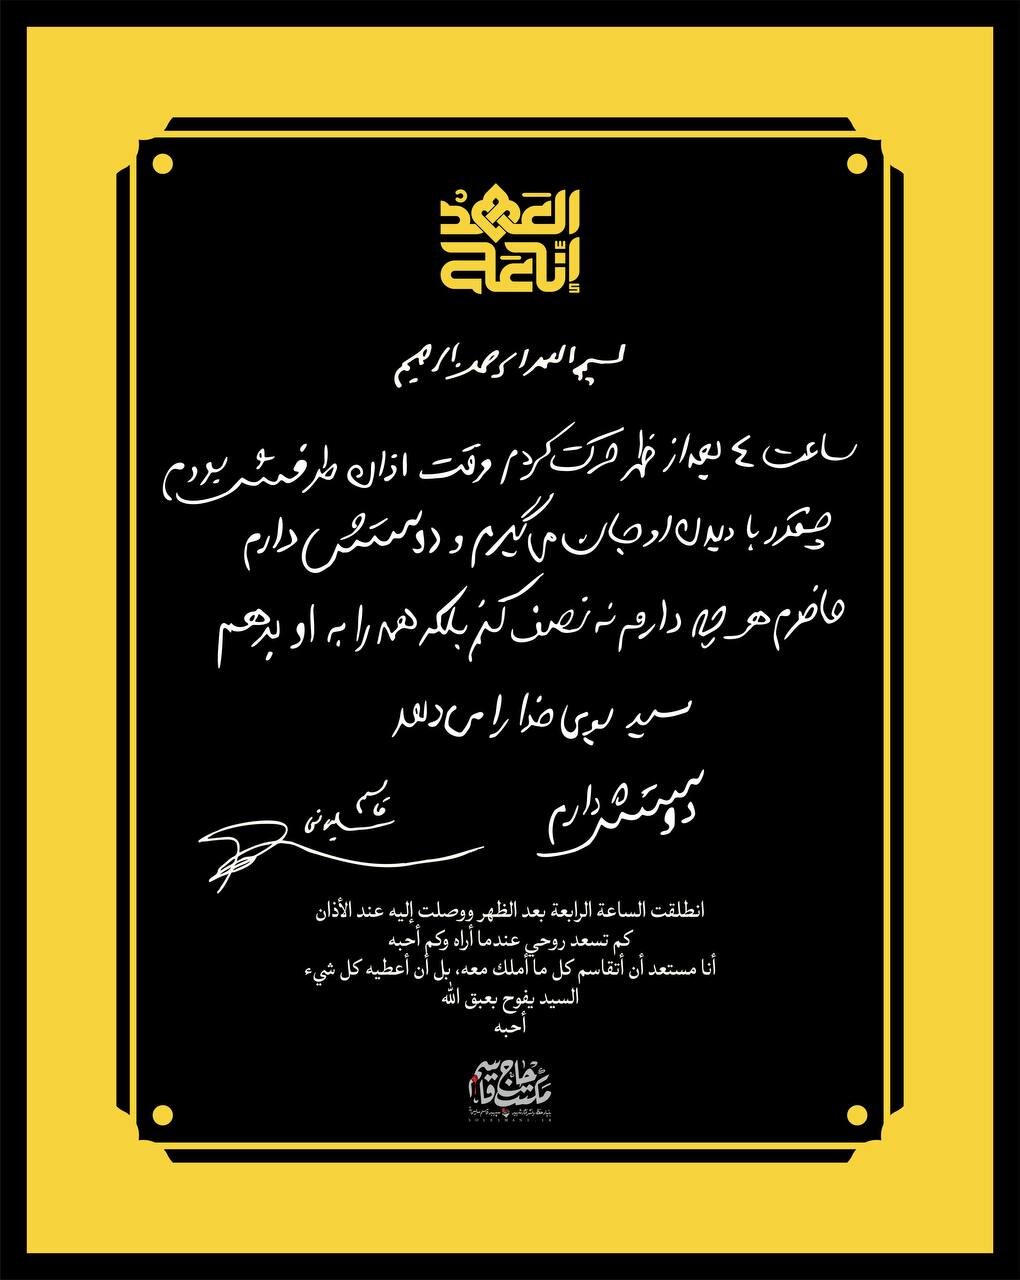 إنا على
العهد
بسم الله الرحمن الرحیم
ساعت ٤ بعد از ظهر حرکت کردم وقت اذان طرفش بودم
چقدر با دیدن او جان می‌گیرم و دوستش دارم
حاضرم هر چه دارم نه نصف کنم بلکه همه را به او بدهم
سید بوی خدا را می‌دهد
دوستش دارم
قاسم
سلیمانی
انطلقت الساعة الرابعة بعد الظهر ووصلت إليه عند الأذان
كم تسعد روحي عندما أراه وكم أحبه
أنا مستعد أن أتقاسم كل ما أملك معه، بل أن أعطيه كل شيء
السيد يفوح بعبق الله
أحبه
مکتب حاج قاسم
SOLEIMANI.IR